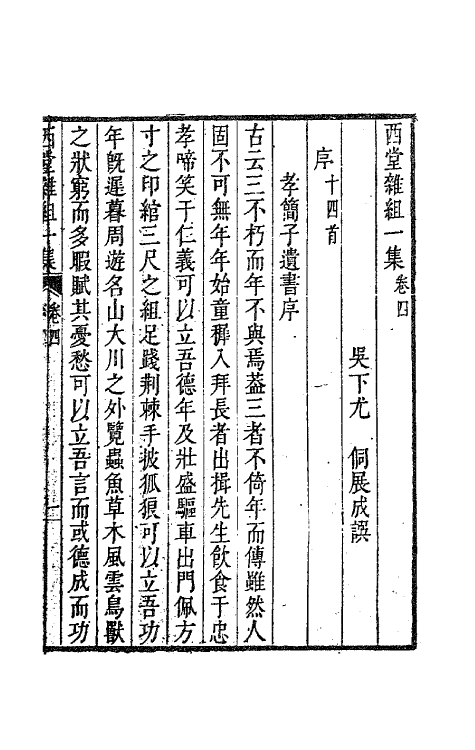 西堂雜組一集卷四
吳下尤　侗展成譔
序十四首
孝簡子遺書序
古云三不朽而年不與焉葢三者不倚年而傳雖然人
固不可無年年始童穉入拜長者出揖先生飮食于忠
孝啼笑于仁義可以立吾德年及壯盛驅車出門佩方
寸之印綰三尺之組足踐荆棘手披狐狼可以立吾功
年旣遲暮周遊名山大川之外覽蟲魚草木風雲鳥獸
之狀窮而多暇賦其憂愁可以立吾言而或德成而功
西堂雜組一集　卷四　一